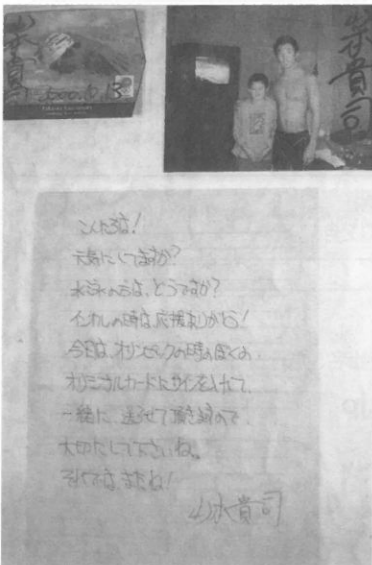 山本貴司
山本貴司
こんにちは!
元気にしてますか?
水泳の方は、どうですか?
インカレの時は、応援ありがとう!
今日は、オリンピックの時のぼくの
オリジナルカードにサインを入れて、
一緒に、送らせて頂きますので、
大切にして下さいね。
それでは、またね!
山本貴司